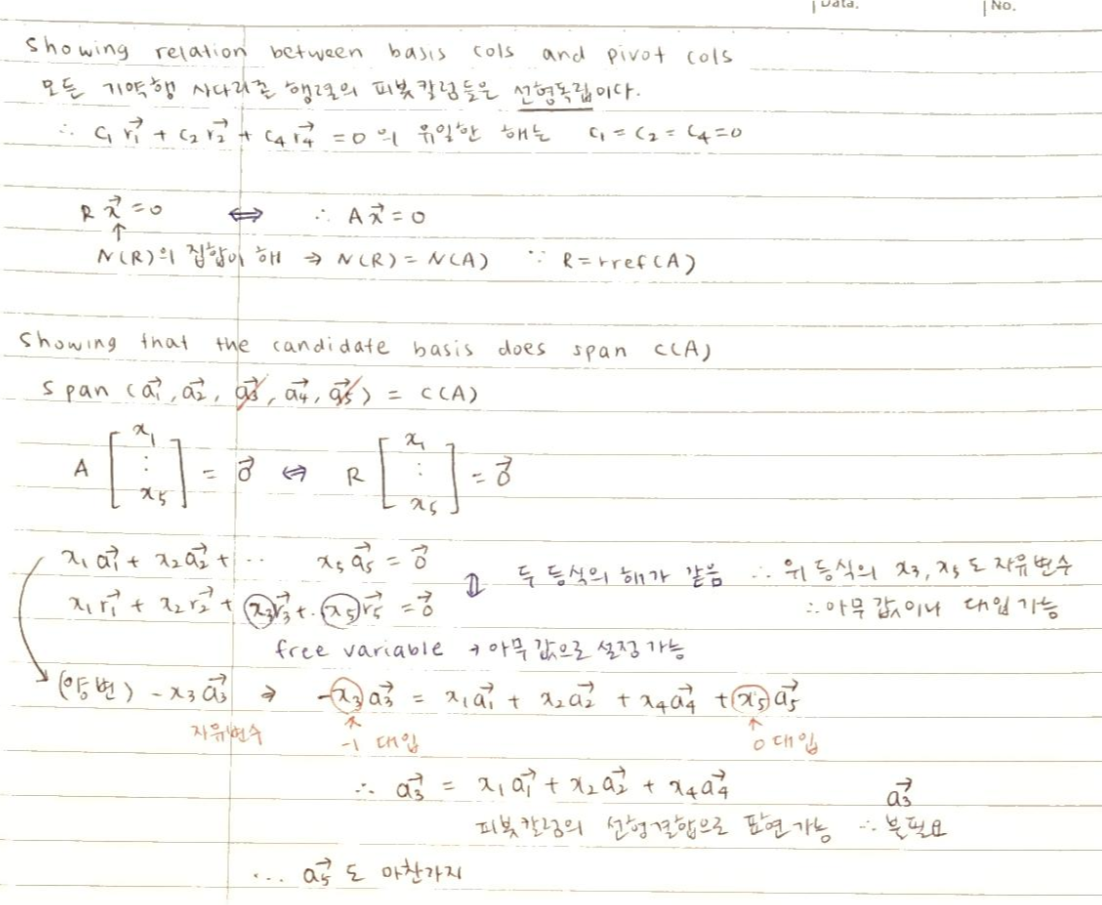 Data.
No.
Showing relation between basis cols and pivot cols
모든 기약행 사다리꼴 행렬의 피봇칼럼들은 선형독립이다.
∴ c₁r₁⃗ + c₂r₂⃗ + c₄r₄⃗ = 0 의 유일한 해는 c₁ = c₂ = c₄ = 0
R x⃗ = 0 ⇔ ∴ A x⃗ = 0
↑
N(R)의 집합이 해 ⇒ N(R) = N(A) ∵ R = rref(A)
Showing that the candidate basis does span C(A)
Span (a₁⃗, a₂⃗, a₃⃗, a₄⃗, a₅⃗) = C(A)
A [x₁ : x₅] = 0⃗ ⇔ R [x₁ : x₅] = 0⃗
x₁a₁⃗ + x₂a₂⃗ + ·· x₅a₅⃗ = 0⃗
x₁r₁⃗ + x₂r₂⃗ + x₃r₃⃗ +·· x₅r₅⃗ = 0⃗
⇕ 두 등식의 해가 같음 ∴ 위 등식의 x₃, x₅ 도 자유변수
∴ 아무 값이나 대입 가능
free variable → 아무 값으로 설정 가능
(양변) - x₃a₃⃗ ⇒ -x₃a₃⃗ = x₁a₁⃗ + x₂a₂⃗ + x₄a₄⃗ + x₅a₅⃗
자유변수 ↑ -1 대입 ↑ 0 대입
∴ a₃⃗ = x₁a₁⃗ + x₂a₂⃗ + x₄a₄⃗
피봇칼럼의 선형결합으로 표현가능 ∴ a₃⃗ 불필요
··· a₅⃗ 도 마찬가지